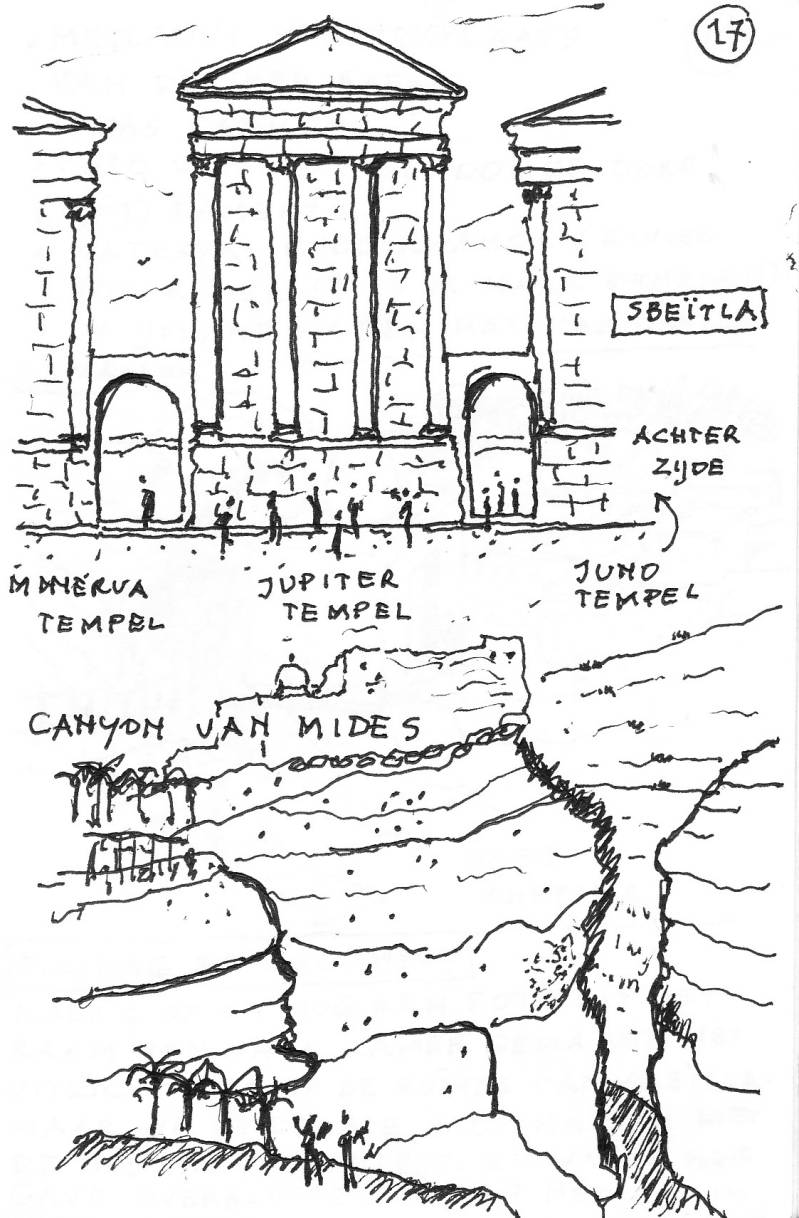 17
SBEÏTLA
ACHTER
ZIJDE
MINERVA
TEMPEL
JUPITER
TEMPEL
JUNO
TEMPEL
CANYON VAN MIDES